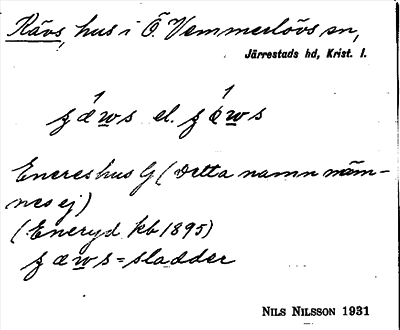 Rävs, hus i Ö. Vemmerlövs sn,
Järrestads hd, Krist. l.
ʒ æ w s el. ʒ ė w s
Enereshus G (Detta namn näm-
nes ej)
(Eneryd kb 1895)
ʒ æ w s = sladder
NILS NILSSON 1931